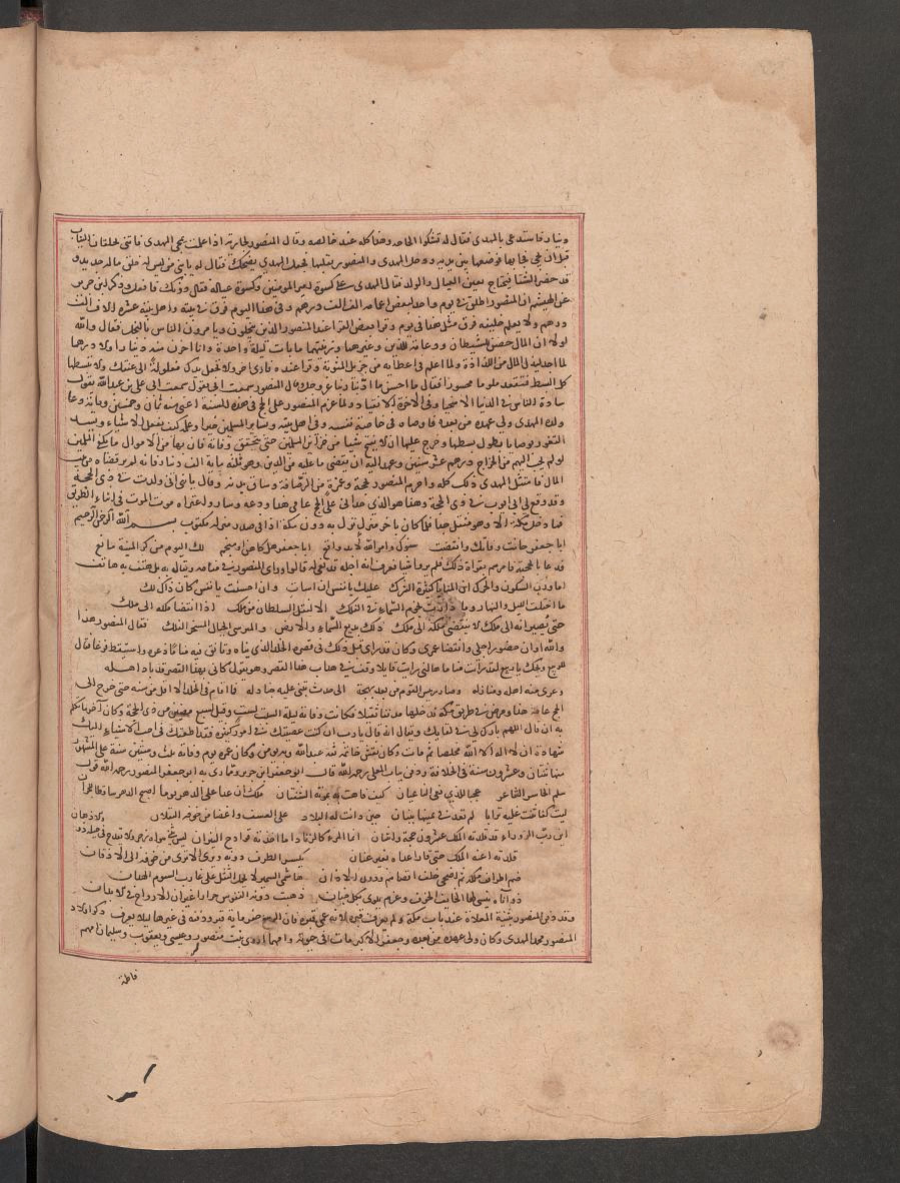 دينار فاستدعى بالمهدي فقال له تشكوا الحاجة وهذا كله عند خالصة وقال المنصور لجاريته اذا علمت بمجي المهدي فاتني بخلقان الثياب
قبل ان يجي فجا بها فوضعها بين يديه ودخل المهدي والمنصور يقلبها فجعل المهدي يضحك فقال له يا بني من ليس له خلق ماله جديد و
قد حضر الشتا فنحتاج نعين العيال والولد فقال المهدي علي كسوة امير المومنين وكسوة عياله فقال دونك فافعل وذكر ابن جرير
عن الهيثم ان المنصور اطلق في يوم واحد لبعض اعمامه الف الف درهم وفي هذا اليوم فرق في بيته واهل بيته عشرة الاف الف
درهم ولا يعلم خليفة فرق مثل هذا في يوم وقرا بعض القرا عند المنصور الذين يبخلون ويامرون الناس بالبخل فقال والله
لولا ان المال حصن للسلطان ودعامة للدين وعزهما وزينتهما ما بات ليلة واحدة وانا احرز منه دينارا ولا درهما
لما اجد لبذل المال من اللذاذة ولما اعلم في اعطايه من جزيل المثوبة وقرا عنده قارئ اخر ولا تجعل يدك مغلولة الى عنقك ولا تبسطها
كل البسط فتقعد ملوما محسورا فقال ما احسن ما ادبنا ربنا عز وجل وقال المنصور سمعت ابي يقول سمعت ابي علي بن عبد الله يقول
سادة الناس في الدنيا الاسخيا وفي الاخرة الاتقيا ولما عزم المنصور على الحج في هذه السنة اعني سنة ثمان وخمسين ومائة دعا
ولده المهدي ولي عهده من بعده فاوصاه في خاصة نفسه وفي اهل بيته وساير المسلمين خيرا وعلمه كيف يفعل الاشياء ويسد
الثغور بوصايا يطول بسطها وحرج عليه ان لا يفتح شيا من خزاين المسلمين حتى يتحقق وفاته فان بها من الاموال ما يكفي المسلمين
لو لم يجب اليهم من الخراج درهم عشر سنين وعهد اليه ان يقضي ما عليه من الدين وهو ثلثمائة الف دينار فانه لم ير قضاه من بيت
المال فامتثل المهدي ذلك كله واحرم المنصور بحجة وعمرة من الرصافة وساق بدنه وقال يا بني اني ولدت في ذي الحجة
وقد وقع لي ان اموت في ذي الحجة وهذا هو الذي حداني على الحج عامي هذا وودعه وسار واعتراه مرض الموت في اثناء الطريق
فما دخل مكة الا وهو مثقل جدا فلما كان باخر منزل نزل به دون مكة اذا في صدر منزله مكتوب بسم الله الرحمن الرحيم
ابا جعفر حانت وفاتك وانقضت سنوك وامر الله لا بد واقع ابا جعفر هل كاهن او منجم لك اليوم من كر المنية مانع
فدعا بالحجبة فامرهم بقراة ذلك فلم يروا شيا فعرف ان اجله قد نعي له قالوا وراى المنصور في منامه ويقال بل هتف به هاتف
اما ورب السكون والحرك ان المنايا كثيرة الشرك عليك يا نفس ان اسات وان احسنت يا نفس كان ذاك لك
ما اختلف الليل والنهار وما دارت نجوم السماء في الفلك الا لنقل السلطان من ملك اذا انقضا ملكه الى ملك
حتى يصيرانه الى ملك ما ينقضي ملكه الى ملك ذلك بديع السماء والارض والمرسي الجبال المسخر الفلك فقال المنصور هذا
والله اوان حضور اجلي وانقضا عمري وكان قد راى قبل ذلك في قصره الخلد الذي بناه وتانق فيه مناما ذعره واستيقظ فزعا فقال
للربيع ويحك يا ربيع لقد رايت مناما هالني رايت قايلا وقف في باب هذا القصر وهو يقول كاني بهذا القصر قد باد اهله
وعري منه اهله ومنازله وصار رئيس القوم من بعد بهجة الى جدث تبنى عليه جنادله فما اقام في الخلد الا اقل من سنة حتى خرج الى
الحج عامه هذا ومرض في طريق مكة فدخلها مدنفا ثقيلا فكانت وفاته ليلة السبت لست وقيل لسبع مضين من ذي الحجة وكان اخر ما تكلم
به ان قال اللهم بارك لي في لقايك ويقال انه قال يا رب ان كنت عصيتك في امور كثيرة فقد اطعتك في احب الاشياء اليك
شهادة ان لا اله الا الله مخلصا ثم مات وكان نقش خاتمه ثقة عبد الله وبه يومن وكان عمره يوم وفاته ثلث وستين سنة على المشهور
منها ثنتان وعشرون سنة في الخلافة ودفن بباب المعلى رحمه الله قال ابو جعفر ابن جرير ومما رثي به ابو جعفر المنصور رحمه الله قول
سلم الخاسر الشاعر عجبا للذي نعى الناعيان كيف فاهت بموته الشفتان ملك ان عدا على الدهر يوما اصبح الدهر ساقطا للجران
ليت كفا حثت عليه ترابا لم تعد في يمينها ببنان حين دانت له البلاد على العسف واغضا من خوفه الثقلان
اين رب الزوراء قد قلدته الملك عشرون حجة واثنتان انما المرء كالزناد اذا ما اخذته قوادح النيران ليس يثني هواه زجر ولا تقدح في حبله ذوو الاذهان
قلدته اعنة الملك حتى قاد اعداءه بغير عنان يكسر الطرف دونه وترى الايدي من خوفه الى الاذقان
ضم اطراف ملكه ثم اضحى خلف اقصاهم ودون الداني هاشمي التشمير لا يحمل الثقل على غارب الشرود الهدان
ذو اناة ينسى لها الخايف الخوف وعزم يلوي بكل جنان ذهبت دونه النفوس حذارا غير ان الارواح في الابدان
وقد دفن المنصور بثنية المعلاة عند باب مكة ولم يعرف قبره لانه عمي قبره فان الربيع حفر ماية قبر ودفنه في غيرها ليلا يعرف ذكر اولاد
المنصور محمد المهدي وكان ولي عهده من بعده وجعفر الاكبر مات في حياته وامهما اروى بنت منصور وعيسى ويعقوب وسليمان امهم
فاطمة